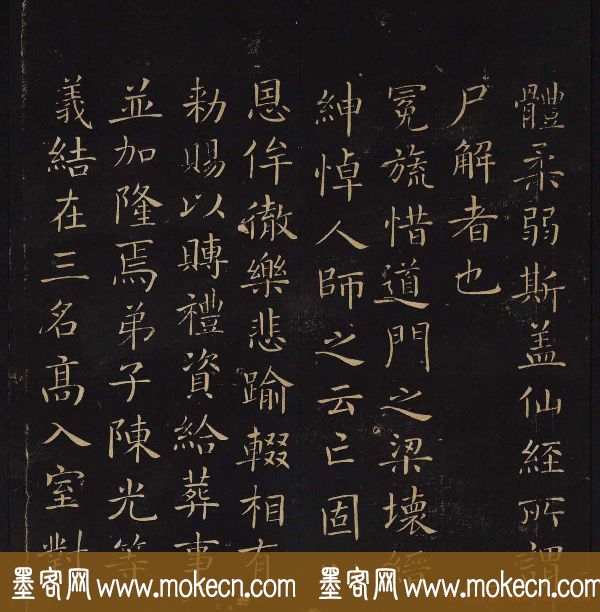 體柔弱斯盖仙經所謂
尸解者也
冕旒惜道門之梁壞縉
紳悼人師之云亡固
恩侔徹樂悲踰輟相有
勑賜以賻禮資給葬事
並加隆焉弟子陳光等
義結在三名髙入室對
墨客网 www.mokecn.com 墨客网 www.mokecn.com